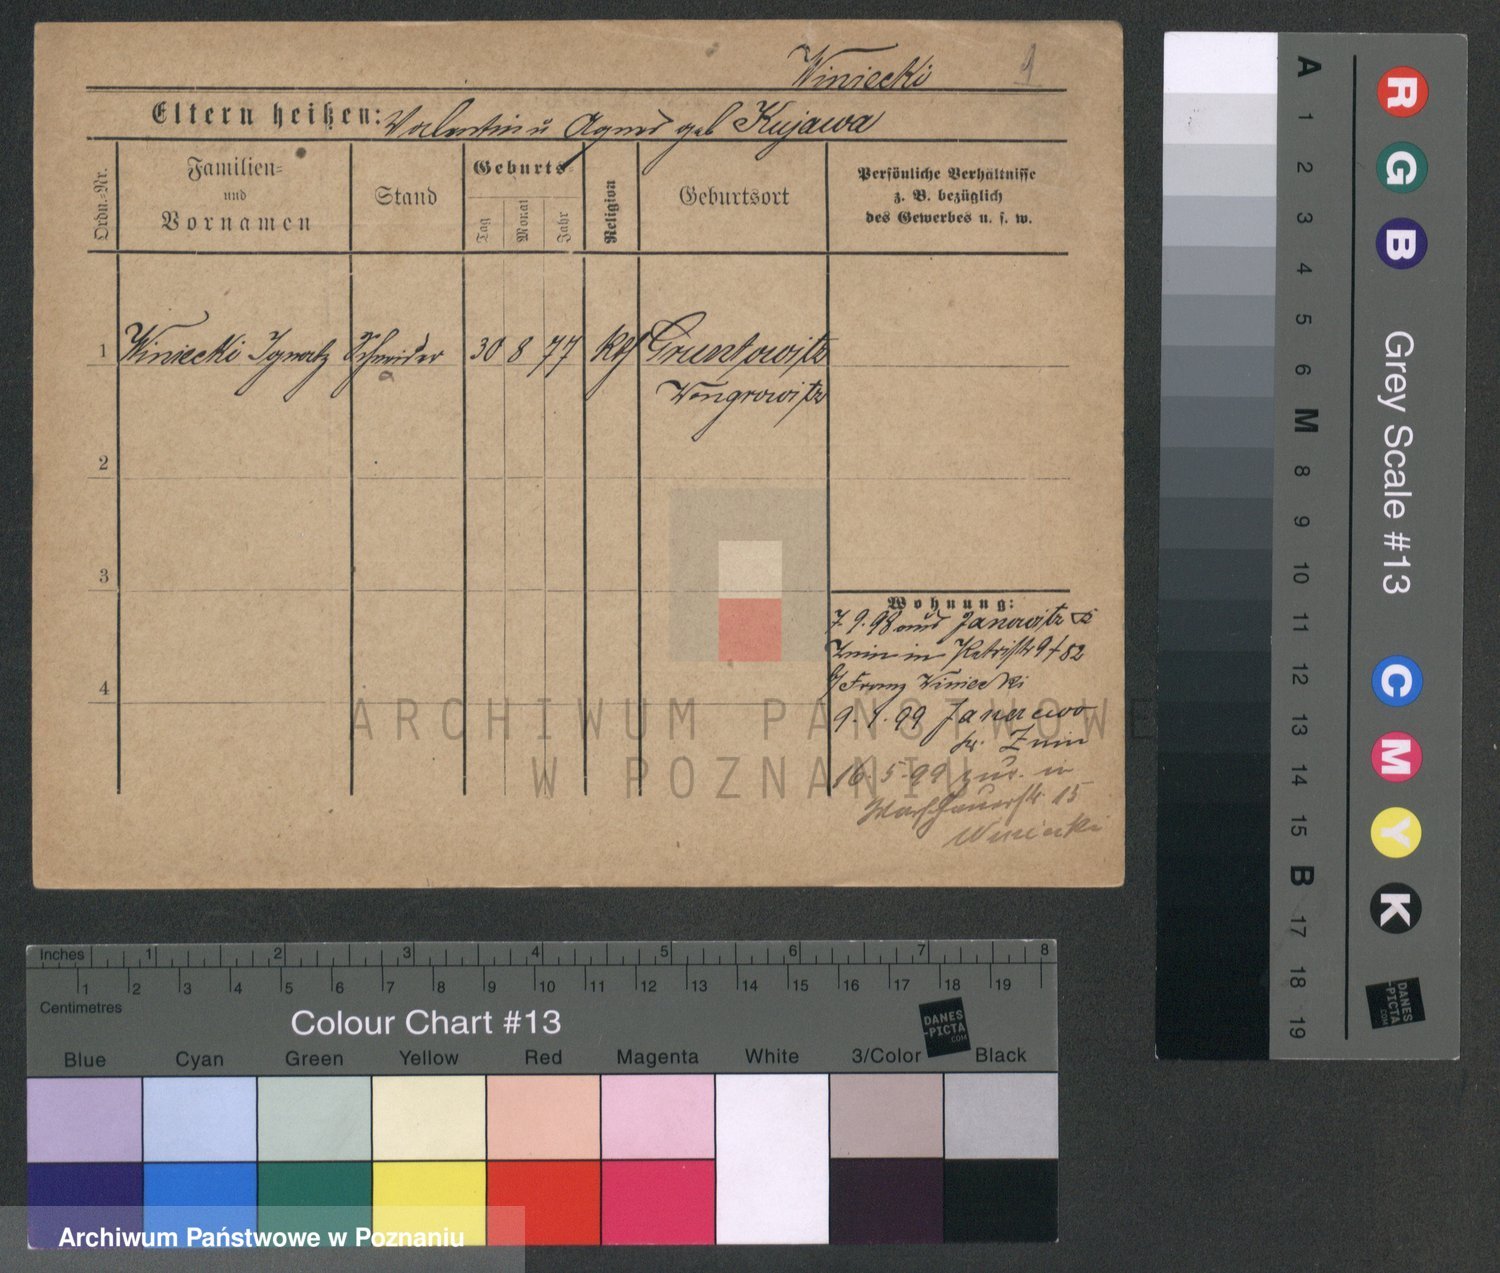 Winiecki 1
Eltern heißen: Valentin u Agnes geb Kujawa
Ordn.-Nr.
Familien-
und
Vornamen
Stand
Geburts-
Tag
Monat
Jahr
Religion
Geburtsort
Persönliche Verhältnisse
z. B. bezüglich
des Gewerbes u. s. w.
1 Winiecki Ignatz Schneider 30 8 77 kth Gruntowitz
Wongrowitz
2
3
4
Wohnung:
7.9.98 aus Janowitz
Znin in Petristr 9
b/ Franz Winiecki
9.1.99 Janowo
kr. Znin
16.5.99 zur. in
Warschauerstr 15
Winiecki
ARCHIWUM PAŃSTWOWE
W POZNANIU
A 1 2 3 4 5 6 M 8 9 10 11 12 13 14 15 B 17 18 19
Grey Scale #13
R G B C M Y K
DANES
-PICTA
.COM
Inches 1 2 3 4 5 6 7 8
1 2 3 4 5 6 7 8 9 10 11 12 13 14 15 16 17 18 19
Centimetres
Colour Chart #13
DANES
-PICTA
.COM
Blue Cyan Green Yellow Red Magenta White 3/Color Black
Archiwum Państwowe w Poznaniu